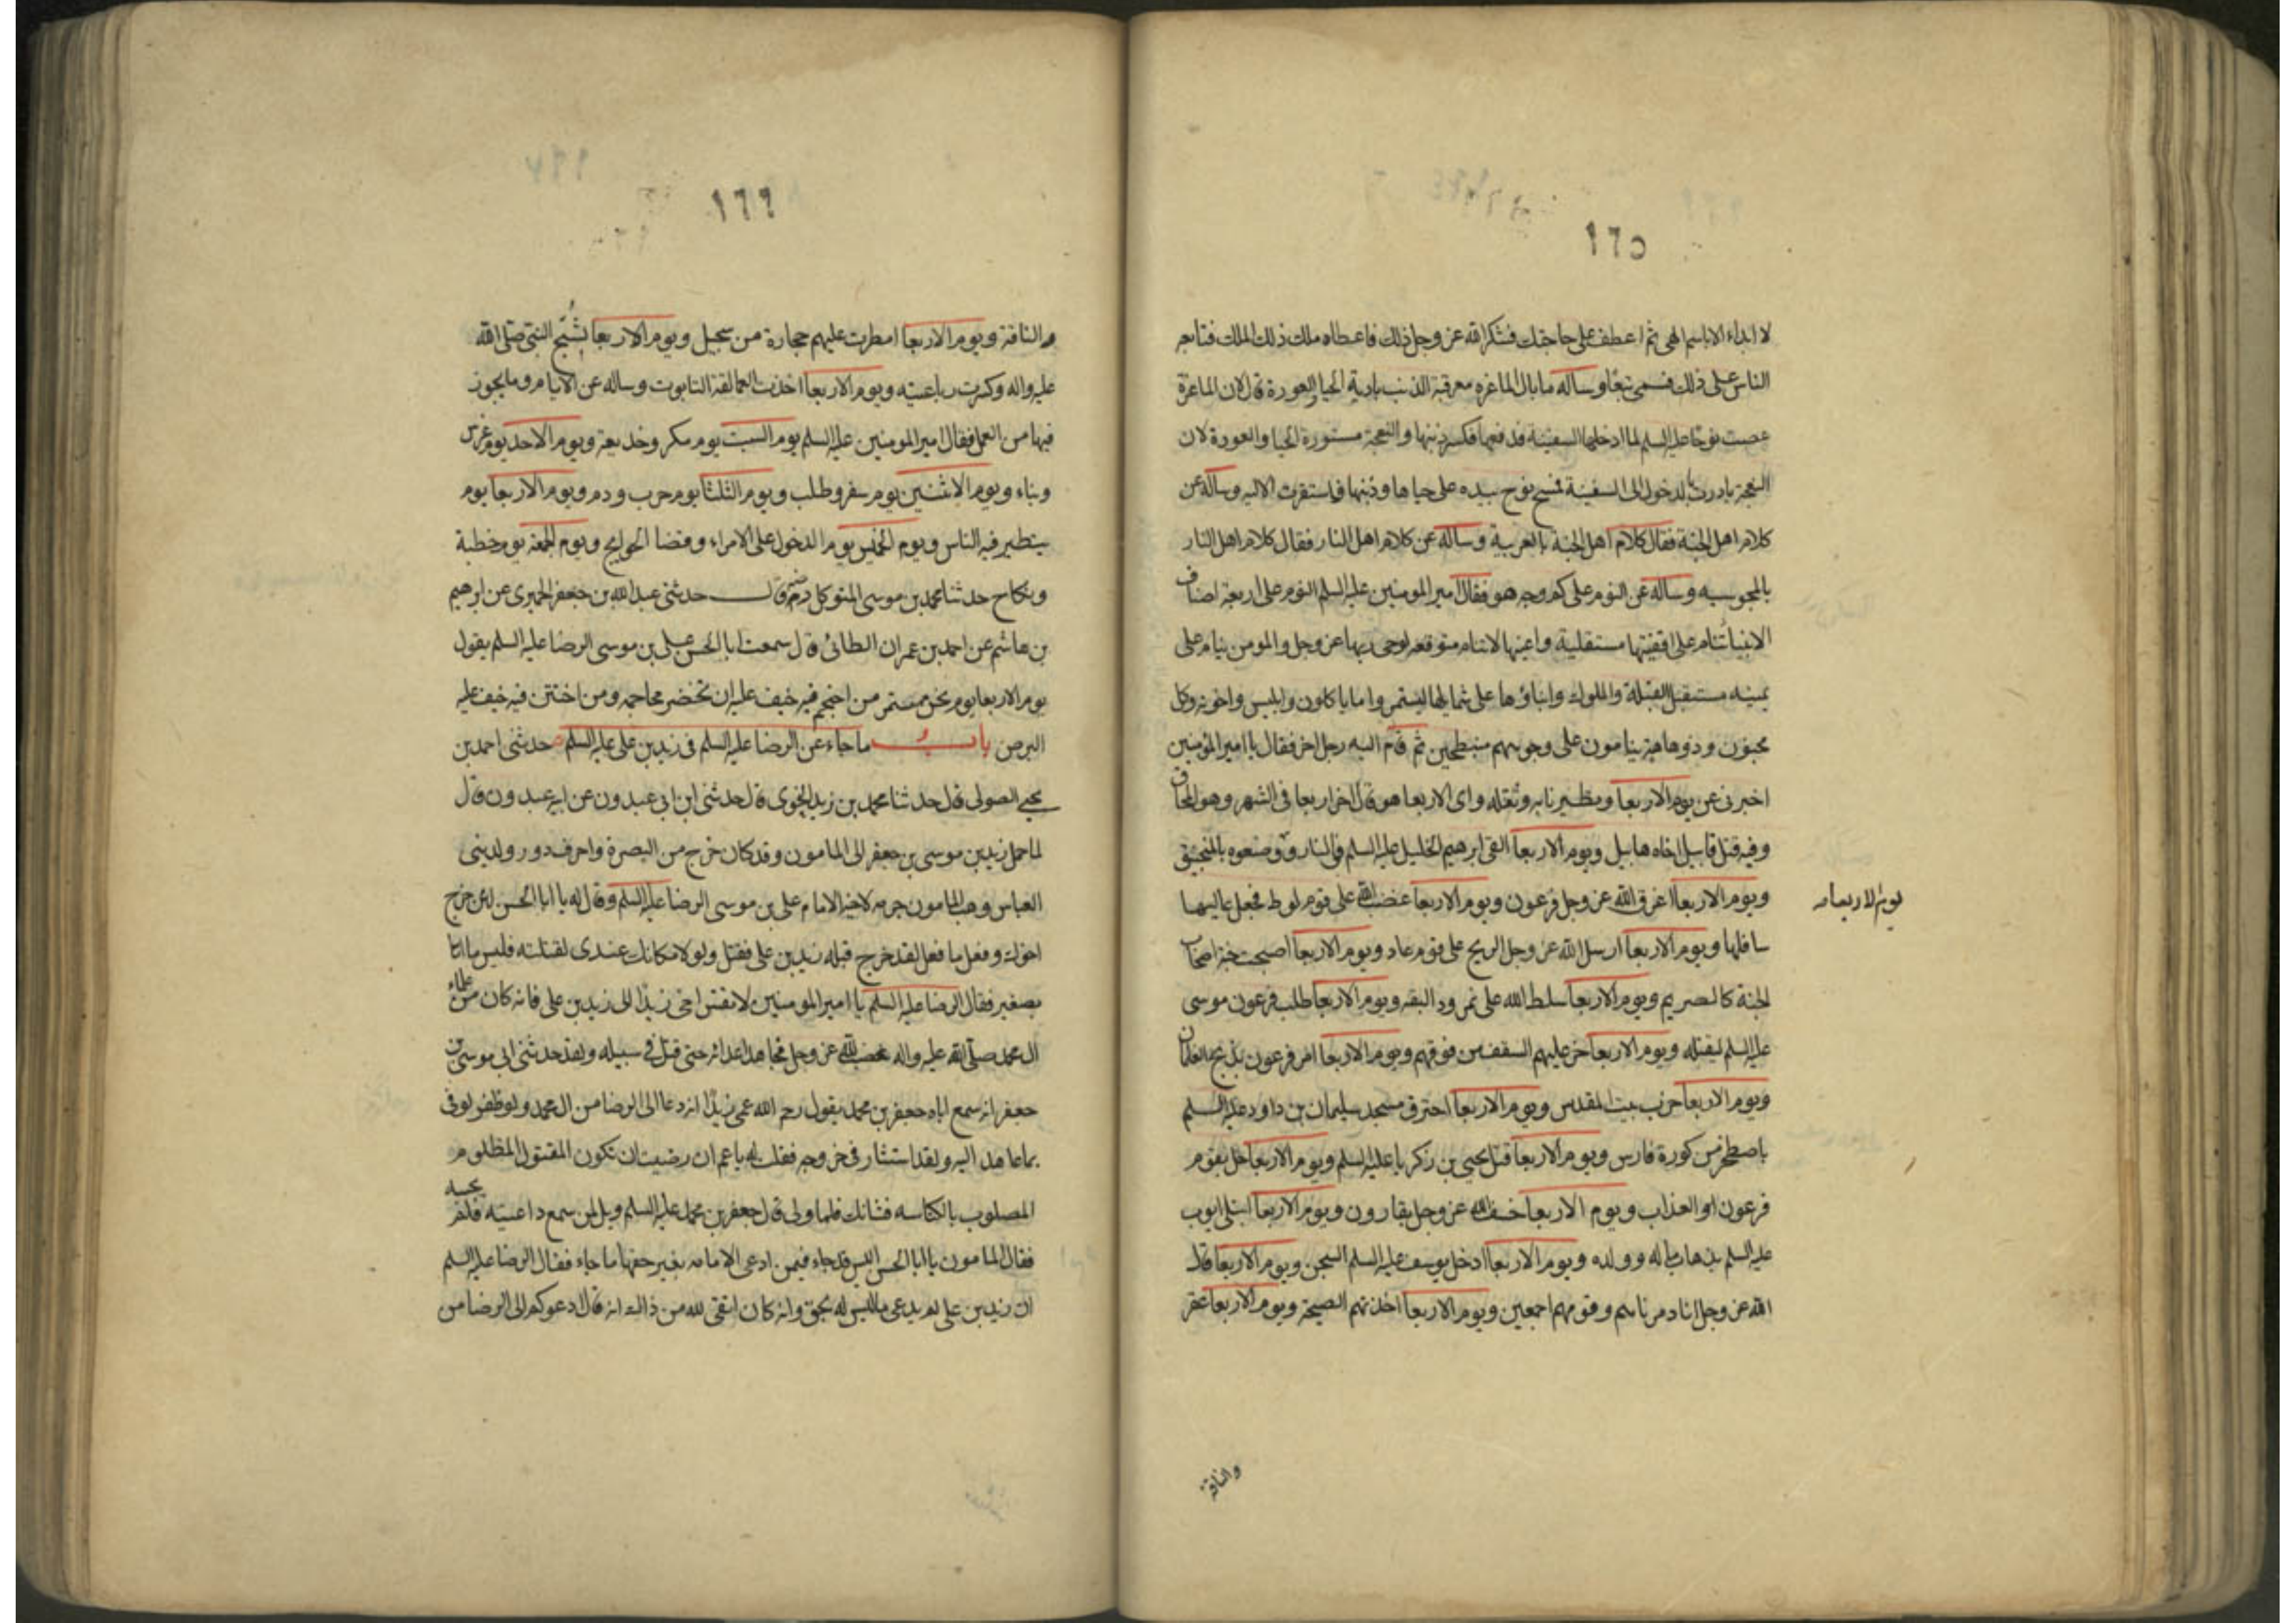 ١٦٥
لا ابداء الا باسم الهى ثم اعطف على حاجتك فشكر الله عز وجل ذلك فاعطاه ملك ذلك الملك فتابعه
الناس على ذلك فسمى تبعا وساله ما بال الماعزه معرقبة الذنب بادية الحيا والعورة قال لان الماعزة
عصت نوحا عليه السلم لما ادخلها السفينة فدفعها فكسر ذنبها والنعجة مستورة الحيا والعورة لان
النعجة بادرت بالدخول الى السفينة فمسح نوح بيده على حياها وذنبها فاستقرت الاليه وساله عن
كلام اهل الجنة فقال كلام اهل الجنة بالعربية وساله عن كلام اهل النار فقال كلام اهل النار
بالمجوسيه وساله عن النوم على كم وجه هو فقال امير المومنين عليه السلم النوم على اربعة اصناف
الانبيا تنام على اقفيتها مستقلية واعينها لا تنام متوقعه لوحى ربها عز وجل والمومن ينام على
يمينه مستقبل القبلة والملوك وابناؤها على شمايلها ليستمروا ما ياكلون وابليس واخوته وكل
مجنون وذو عاهة ينامون على وجوههم منبطحين ثم قام اليه رجل اخر فقال يا امير المؤمنين
اخبرنى عن يوم الاربعا وتطيرنا به وثقله واى الاربعا هو قال اخر اربعا فى الشهر وهو المحاق
وفيه قتل قابيل اخاه هابيل ويوم الاربعا القى ابرهيم الخليل عليه السلم فى النار و وضعوه بالمنجنيق
ويوم الاربعا اغرق الله عز وجل فرعون ويوم الاربعا غضب الله على قوم لوط فجعل عاليها
يوم الاربعاء
سافلها ويوم الاربعا ارسل الله عز وجل الريح على قوم عاد ويوم الاربعا اصبحت جنة اصحاب
الجنة كالصريم ويوم الاربعا سلط الله على نمرود البقه ويوم الاربعا طلب فرعون موسى
عليه السلم ليقتله ويوم الاربعا خر عليهم السقف من فوقهم ويوم الاربعا امر فرعون بذبح الغلمان
ويوم الاربعا خرب بيت المقدس ويوم الاربعا احترق مسجد سليمان بن داود عليه السلم
باصطخر من كورة فارس ويوم الاربعا قتل يحيى بن زكريا عليه السلم ويوم الاربعا حل بقوم
فرعون او العذاب ويوم الاربعا خسف الله عز وجل بقارون ويوم الاربعا ابتلى ايوب
عليه السلم بذهاب ماله وولده ويوم الاربعا ادخل يوسف عليه السلم السجن ويوم الاربعا قال
الله عز وجل انا دمرناهم وقومهم اجمعين ويوم الاربعا اخذتهم الصيحة ويوم الاربعا عقر
والناقة
١٦٦
والناقة ويوم الاربعا امطرت عليهم حجارة من سجيل ويوم الاربعا شج النبى صلى الله
عليه واله وكسرت رباعيته ويوم الاربعا اخذت العمالقة التابوت وساله عن الايام وما يجوز
فيها من العمل فقال امير المومنين عليه السلم يوم السبت يوم مكر وخديعة ويوم الاحد يوم غرس
وبناء ويوم الاثنين يوم سفر وطلب ويوم الثلثا يوم حرب ودم ويوم الاربعا يوم
يتطير فيه الناس ويوم الخميس يوم الدخول على الامراء وقضا الحوايج ويوم الجمعة يوم خطبة
ونكاح حدثنا محمد بن موسى المتوكل رضى قال حدثنى عبد الله بن جعفر الحميرى عن ابرهيم
بن هاشم عن احمد بن عمران الطائى قال سمعت ابا الحسن على بن موسى الرضا عليه السلم يقول
يوم الاربعا يوم نحس مستمر من احتجم فيه خيف عليه ان تخضر محاجمه ومن اختتن فيه خيف عليه
البرص باب ما جاء عن الرضا عليه السلم فى زيد بن على عليه السلم حدثنى احمد بن
يحيى الصولى قال حدثنا محمد بن زيد النحوى قال حدثنى ابن ابى عبدون عن ابيه عبدون قال
لما حمل زيد بن موسى بن جعفر الى المامون وقد كان خرج من البصرة واحرف دور ولد بنى
العباس وهب المامون جرمه لاخيه الامام على بن موسى الرضا عليه السلم وقال له يا ابا الحسن لئن خرج
اخوك وفعل ما فعل لقد خرج قبله زيد بن على فقتل ولولا مكانك عندى لقتلته فليس ما اتا
بصغير فقال الرضا عليه السلم يا امير المومنين لا تقس اخى زيدًا الى زيد بن على فانه كان من علماء
ال محمد صلى الله عليه واله غضب لله عز وجل فجاهد اعدائه حتى قتل فى سبيله ولقد حدثنى ابى موسى بن
جعفر انه سمع اباه جعفر بن محمد يقول رحم الله عمى زيدًا انه دعا الى الرضا من ال محمد ولو ظفر لوفى
بما عاهد اليه ولقد استشار فى خروجه فقلت له يا عم ان رضيت ان تكون المقتول المظلوم
المصلوب بالكناسه فشانك فلما ولى قال جعفر بن محمد عليه السلم ويل لمن سمع داعيته فلم يجبه
فقال المامون يا ابا الحسن اليس قد جاء فيمن ادعى الامامه بغير حقها ما جاء فقال الرضا عليه السلم
ان زيد بن على لم يدعى ما ليس له بحق وانه كان اتقى لله من ذاك انه قال ادعوكم الى الرضا من